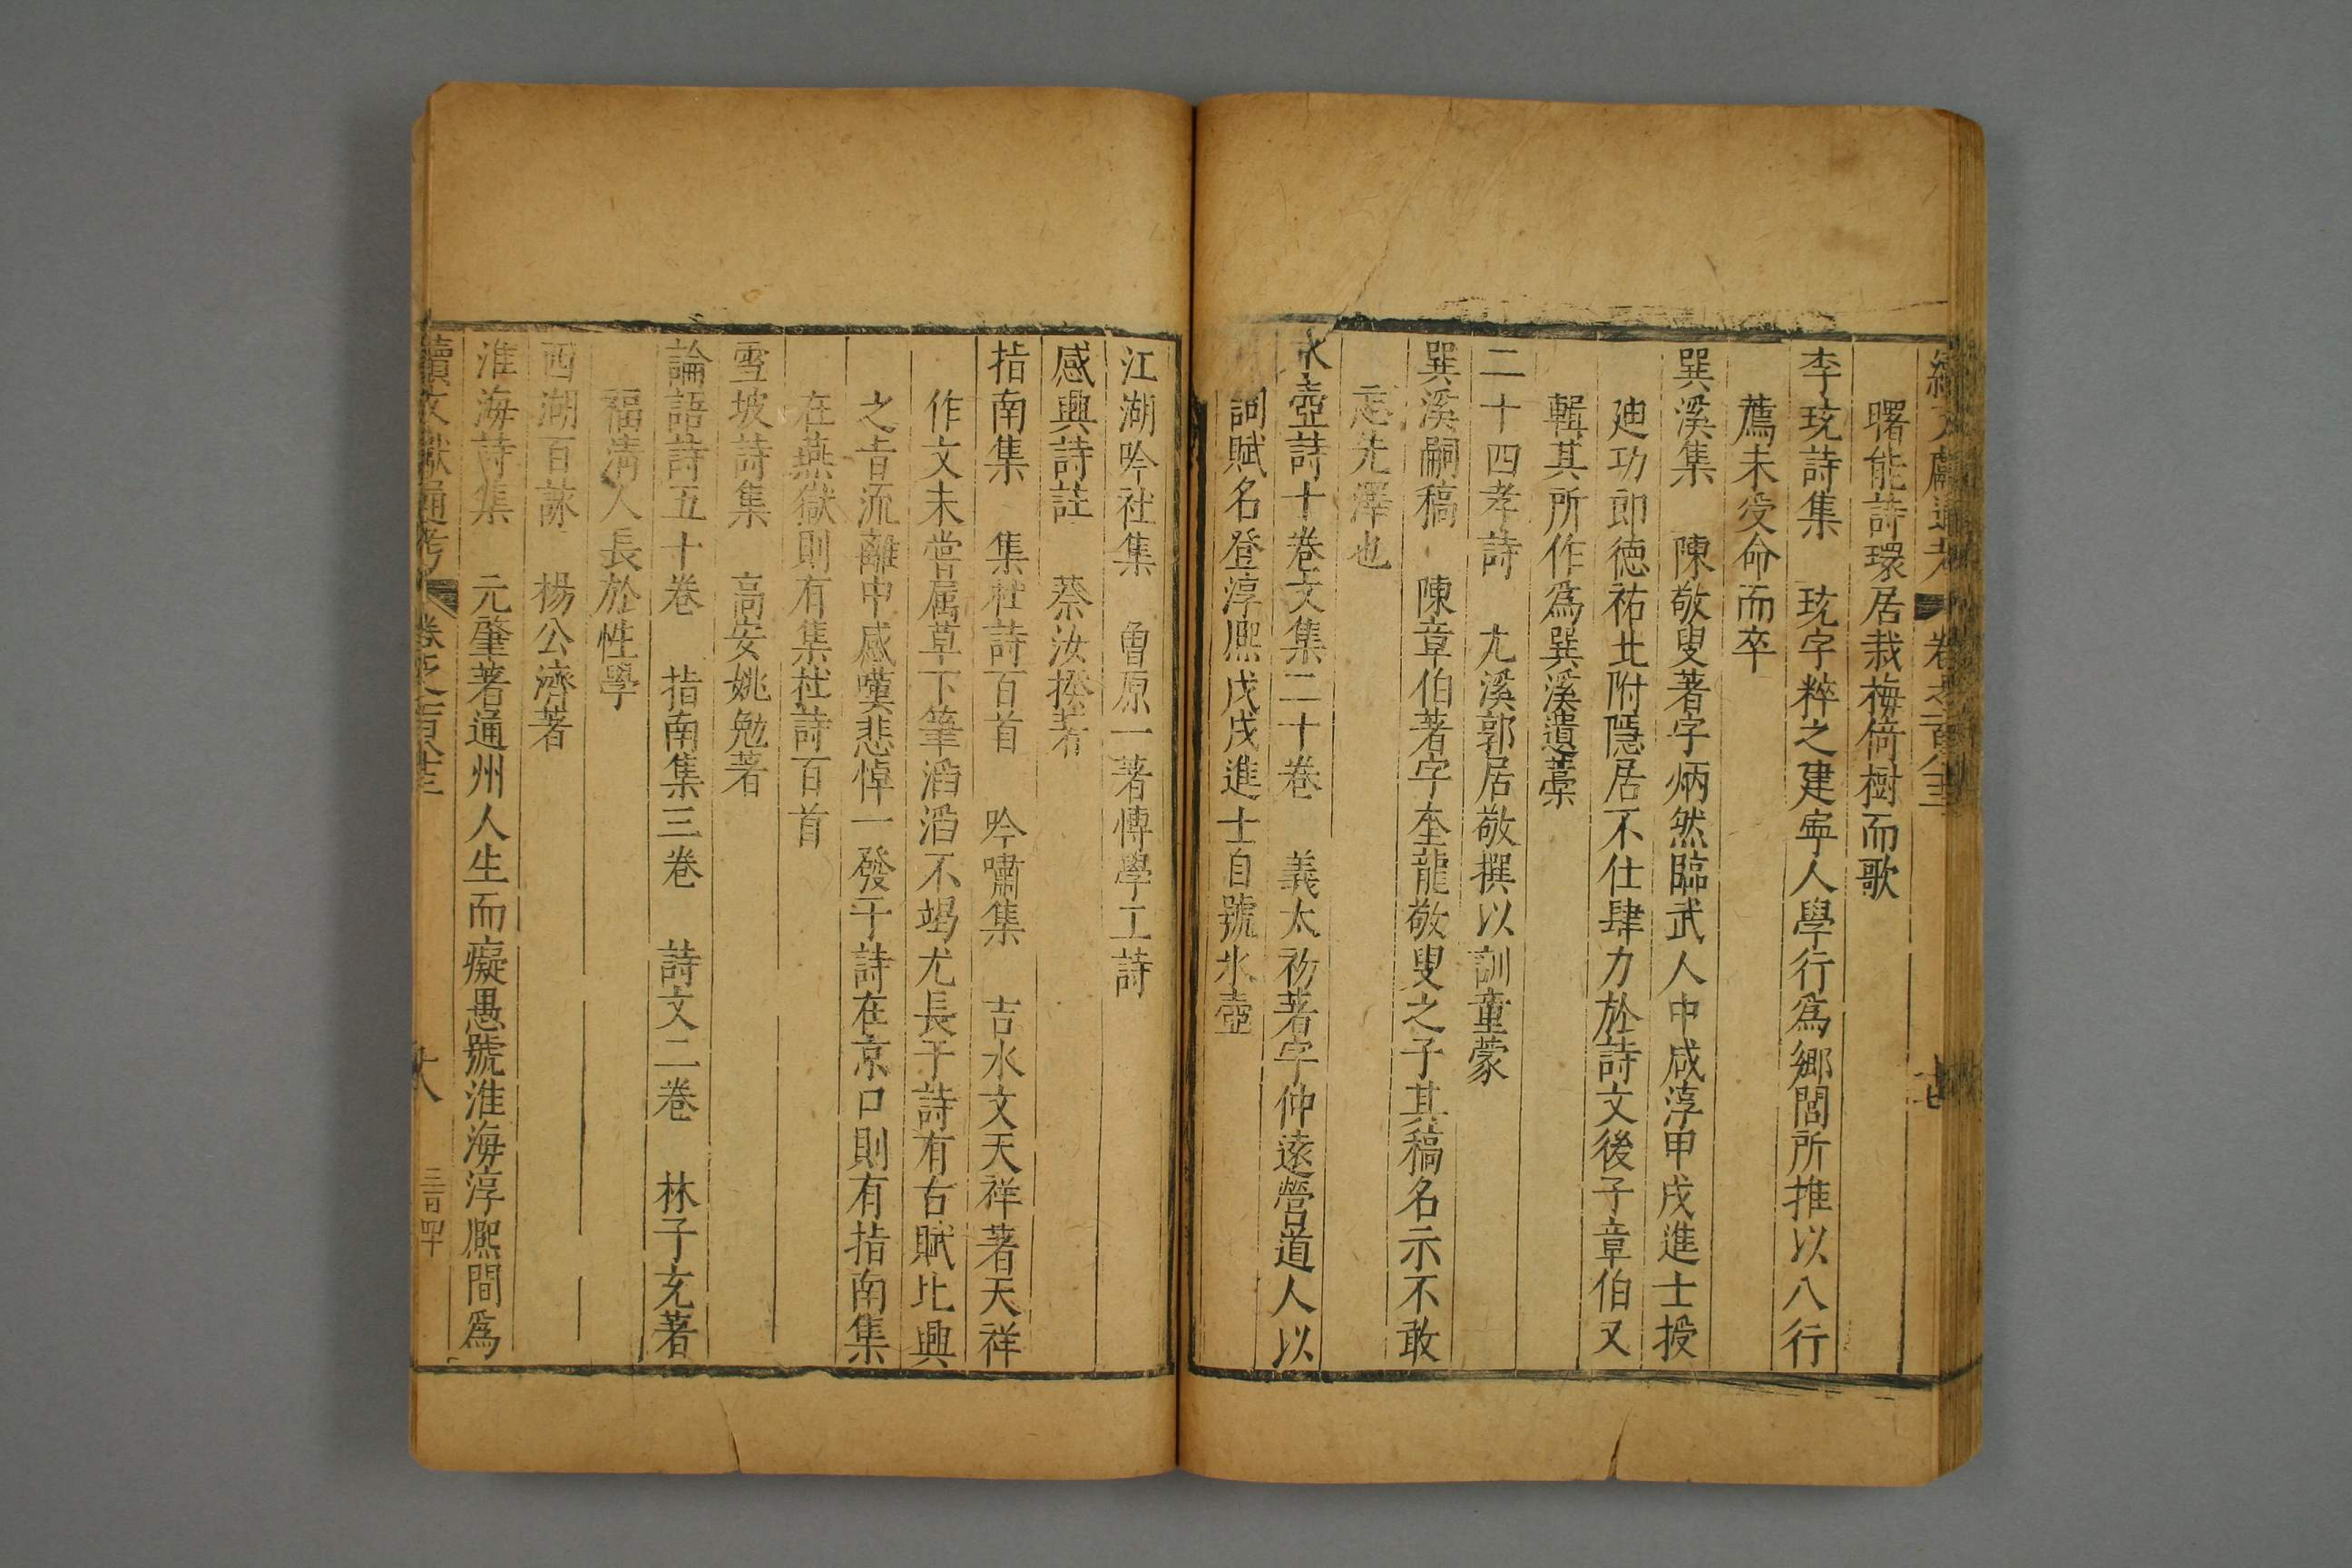 續文獻通考 卷之一百八十三 十七
曙能詩環居栽梅倚樹而歌
李玩詩集 玩字粹之建寧人學行爲鄉閭所推以八行
薦未受命而卒
巽溪集 陳敬叟著字炳然臨武人中咸淳甲戌進士授
廸功即德祐北附隱居不仕肆力於詩文後子章伯又
輯其所作爲巽溪遺藁
二十四孝詩 尤溪郭居敬撰以訓童蒙
巽溪嗣稿 陳章伯著字奎龍敬叟之子其稿名示不敢
忘先澤也
氷壺詩十卷文集二十卷 義太初著字仲遠營道人以
詞賦名登淳熙戊戌進士自號氷壺
江湖吟社集 曾原一著博學工詩
感興詩註 蔡汝揆著
指南集 集杜詩百首 吟嘯集 吉水文天祥著天祥
作文未嘗属草下筆滔滔不竭尤長于詩有古賦比興
之音流離中感嘆悲悼一發于詩在京口則有指南集
在燕獄則有集杜詩百首
雪坡詩集 高安姚勉著
論語詩五十卷 指南集三卷 詩文二卷 林子充著
福清人長於性學
西湖百詠 楊公濟著
淮海詩集 元肇著通州人生而癡愚號淮海淳熙間爲
續文獻通考 卷之一百八十三 十八 三百四十